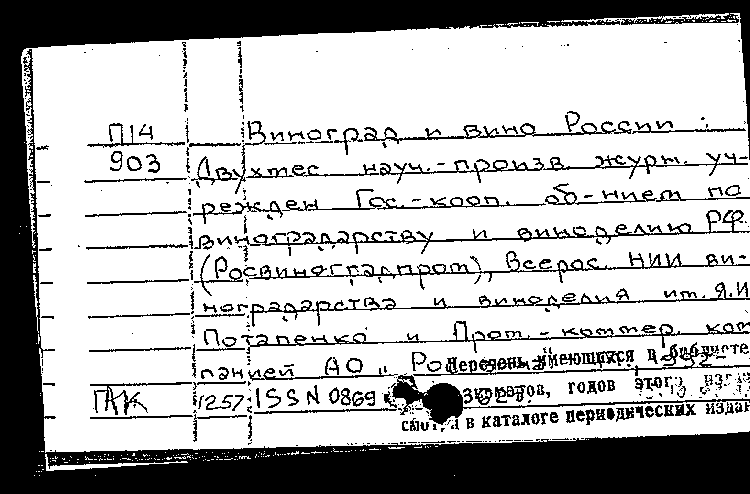 П14 Виноград и вино России :
903 Двухмес. науч.-произв. журн. уч-
режден Гос.-кооп. об-нием по
виноградарству и виноделию РФ
(Росвиноградпром), Всерос. НИИ ви-
ноградарства и виноделия им. Я.И.
Потапенко и Пром.-коммер. ком
панией АО „
Перечень имеющихся в библиоте
ГАК 1257 ISSN 0869
годов этого
в каталоге периодических издан